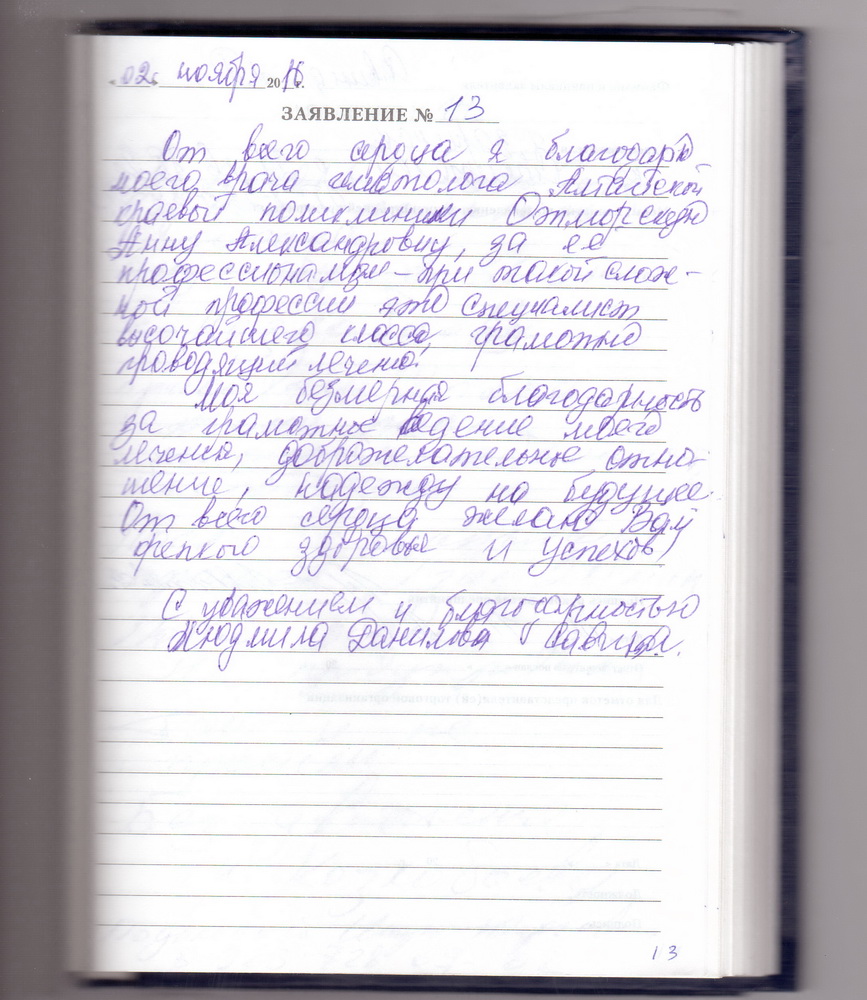 «02» ноября 2016 г.
ЗАЯВЛЕНИЕ № 13
От всего сердца я благодарю
моего врача гистолога Алтайской
краевой поликлиники Отморскую
Анну Александровну, за её
профессионализм – при такой слож-
ной профессии это специалист
высочайшего класса, грамотно
проводящий лечение.
Моя безмерная благодарность
за грамотное ведение моего
лечения, доброжелательное отно-
шение, надежду на будущее.
От всего сердца желаю Вам
крепкого здоровья и успехов
С уважением и благодарностью
Людмила Данилова
13